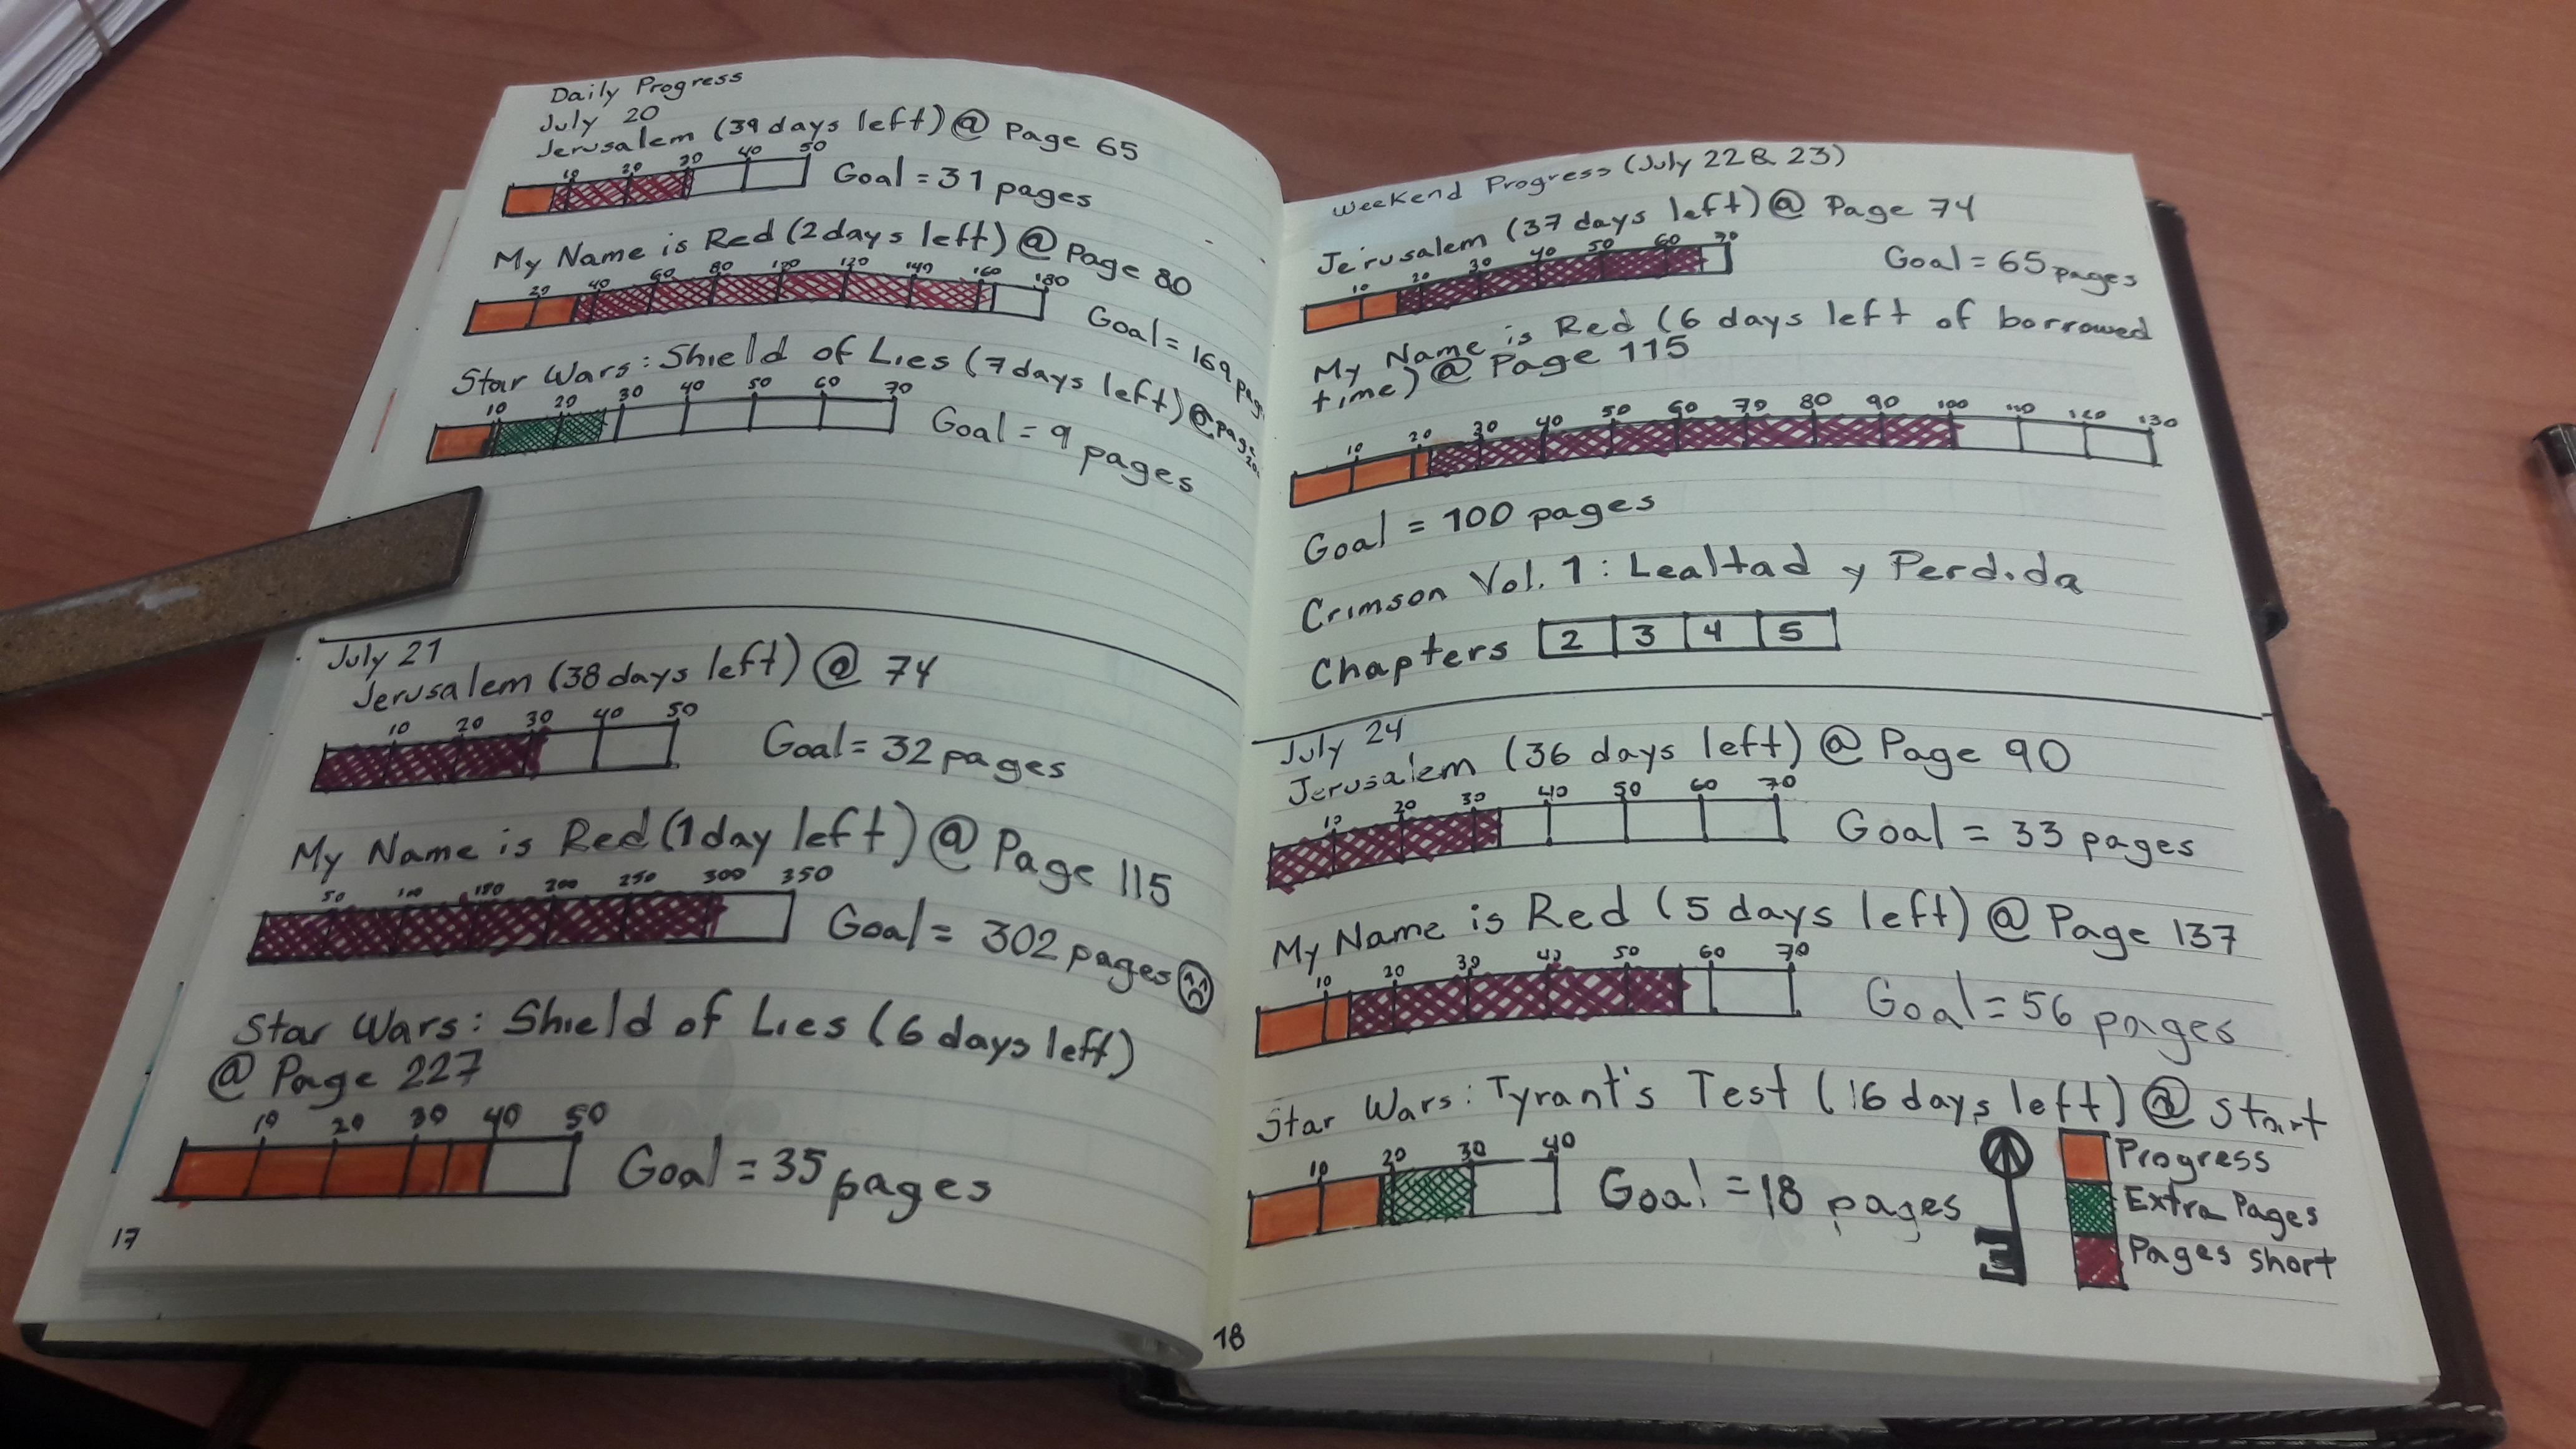 Daily Progress
July 20
Jerusalem (39 days left) @ Page 65
10 20 30 40 50
Goal = 31 pages
My Name is Red (2 days left) @ Page 80
20 40 60 80 100 120 140 160 180
Goal = 169 pag
Star Wars: Shield of Lies (7 days left) @ page
10 20 30 40 50 60 70
Goal = 9 pages
July 21
Jerusalem (38 days left) @ 74
10 20 30 40 50
Goal = 32 pages
My Name is Red (1 day left) @ Page 115
50 100 150 200 250 300 350
Goal = 302 pages
Star Wars: Shield of Lies (6 days left)
@ Page 227
10 20 30 40 50
Goal = 35 pages
17
Weekend Progress (July 22 & 23)
Jerusalem (37 days left) @ Page 74
10 20 30 40 50 60 70
Goal = 65 pages
My Name is Red (6 days left of borrowed
time) @ Page 115
10 20 30 40 50 60 70 80 90 100 110 120 130
Goal = 100 pages
Crimson Vol. 1: Lealtad y Perdida
Chapters 2 3 4 5
July 24
Jerusalem (36 days left) @ Page 90
10 20 30 40 50 60 70
Goal = 33 pages
My Name is Red (5 days left) @ Page 137
10 20 30 40 50 60 70
Goal = 56 pages
Star Wars: Tyrant's Test (16 days left) @ Start
10 20 30 40
Goal = 18 pages
Progress
Extra Pages
Pages short
18